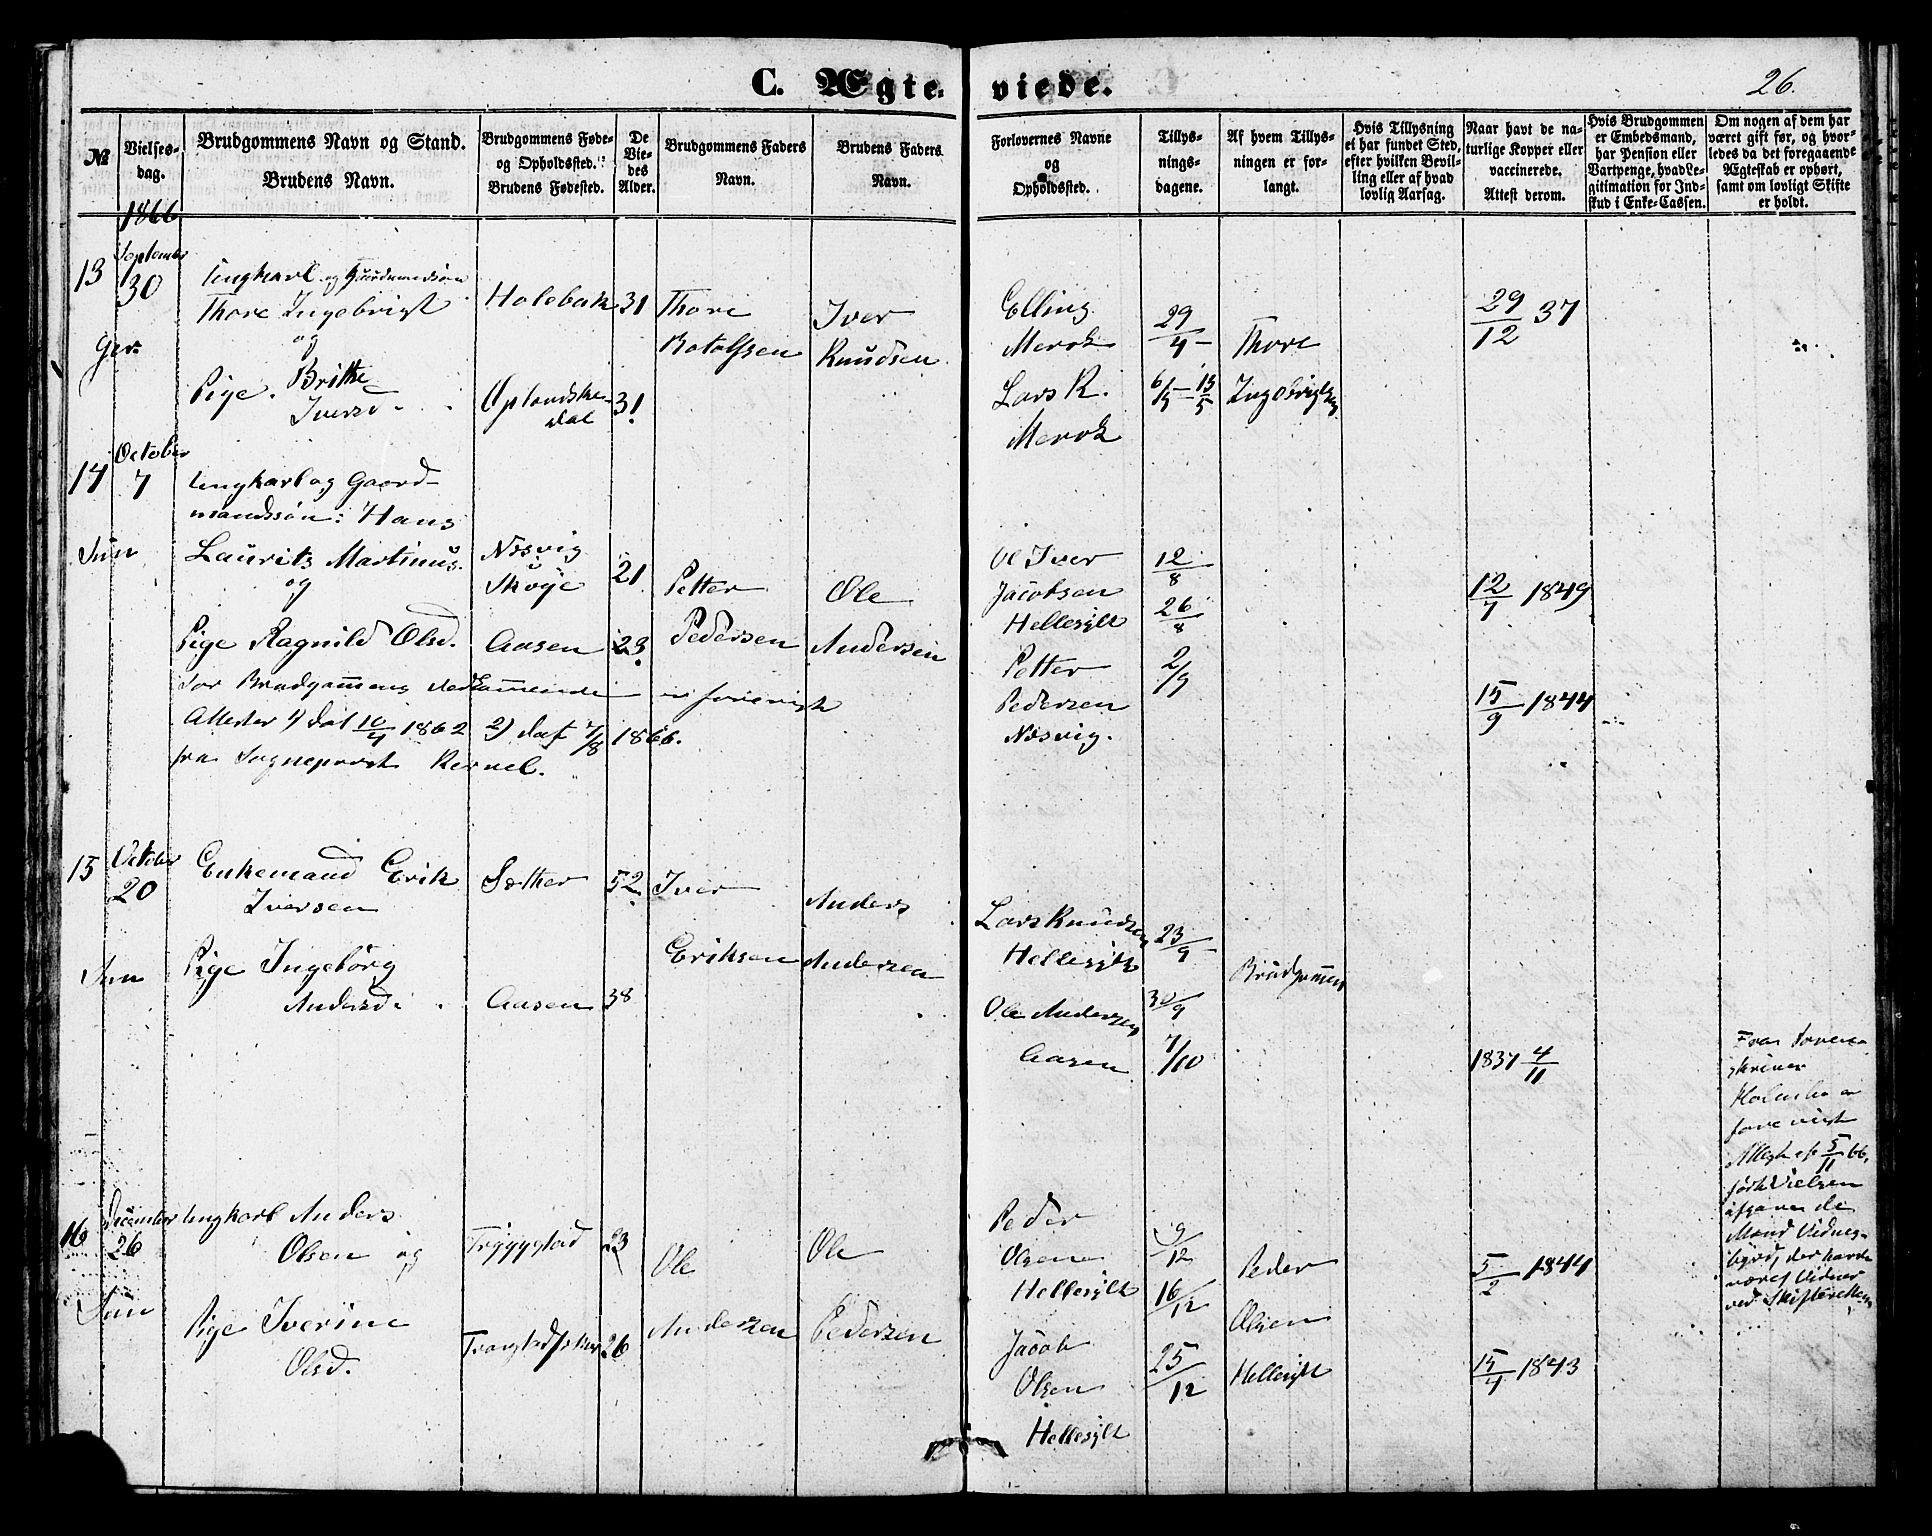 C. Ægte-
viede.
26.
No
Vielses-
dag.
Brudgommens Navn og Stand.
Brudens Navn.
Brudgommens Føde-
og Opholdssted.
Brudens Fødested.
De
Vie-
des
Alder.
Brudgommens Faders
Navn.
Brudens Faders
Navn.
Forlovernes Navne
og
Opholdssted.
Tillys-
nings-
dagene.
Af hvem Tillys-
ningen er for-
langt.
Hvis Tillysning
ei har fundet Sted,
efter hvilken Bevil-
ling eller af hvad
lovlig Aarsag.
Naar havt de na-
turlige Kopper eller
vaccinerede.
Attest derom.
Hvis Brudgommen
er Embedsmand,
har Pension eller
Vartpenge, hvad Le-
gitimation for Ind-
skud i Enke-Cassen.
Om nogen af dem har
været gift før, og hvor-
ledes da det foregaaende
Ægteskab er ophørt,
samt om lovligt Skifte
er holdt.
1866
13
September
30
Ger.
Ungkarl og Gaardmandsøn
Thore Ingebrigt
og
Pige. Brithe
Iversd.
Holebak
Oplandske-
dal
31
31
Thore
Botolfsen
Iver
Knudsen
Elling
Merok
Lars K.
Merok
29/4
6/5 - 13/5
Thore
Ingebrigtsen
29/12 37
14
October
7
Sun
Ungkarl og Gaard-
mandssøn: Hans
Laurits Martinus
og
Pige Ragnild Olsd.
Næsvig
Skoje
Aasen
21
23
Petter
Pedersen
Ole
Andersen
Iver
Jacobsen
Hellesylt
Petter
Pedersen
Næsvig.
12/8
26/8
2/9
12/7 1849
15/9 1844
For Brudgommens Vedkommende forevist
Attester 1) dat 10/4 1862 2) dat 7/8 1866.
fra Sogneprest
15
October
20
Sun
Enkemand Erik
Iversen
Pige Ingebørg
Andersd.
Sæther
Aasen
52
38
Iver
Eriksen
Anders
Andersen
Lars Knudsen
Hellesylt
Ole Andersen
Aasen
23/9
30/9
7/10
Brudgommen
1837 4/11
Fra Sorens-
kriver
forevist
Attest af 5/11 66,
før Vielsen
afgave de
Mænd Vidnes-
byrd, der havde
været Vidner
ved Skifteretten
16
December
26
Sun
Ungkarl Anders
Olsen og
Pige Iverine
Olsd.
Tryggestad
23
26
Ole
Andersen
Ole
Pedersen
Peder
Olsen
Hellesylt
Jacob
Olsen
Hellesylt
9/12
16/12
25/12
Peder
Olsen
Hellesylt
5/2 1844
15/4 1843